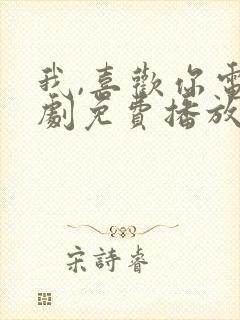 我,喜歡你電
劇免費播放
宋詩睿